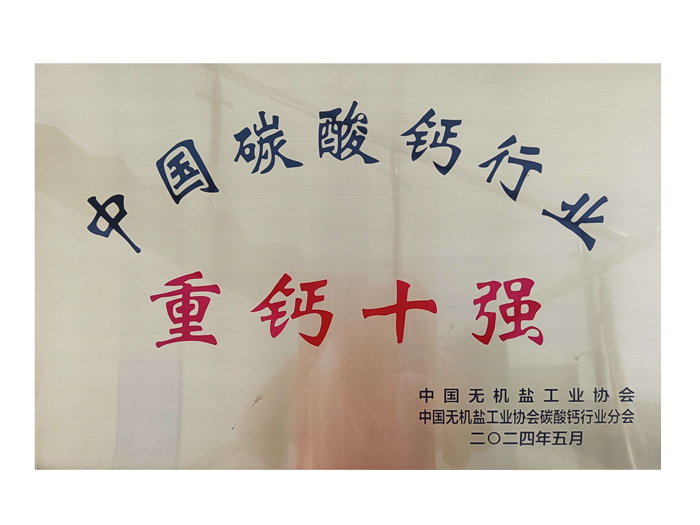 中国碳酸钙行业
重钙十强
中国无机盐工业协会
中国无机盐工业协会碳酸钙行业分会
二〇二四年五月